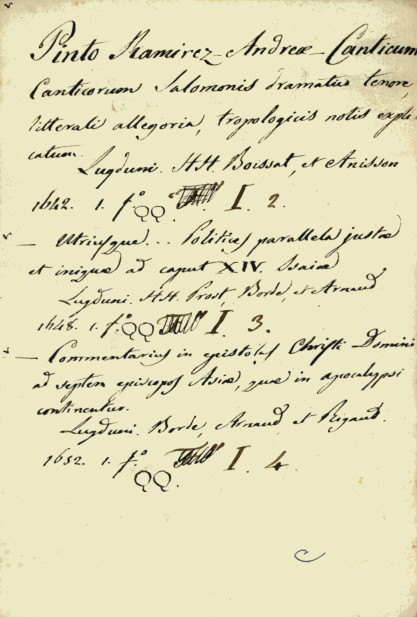 Pinto Ramirez – Andreæ – Canticum
Canticorum Salomonis dramatico tenore,
litterali allegoria, tropologicis notis expli-
catum.
Lugduni. HH. Boissat, et Anisson
1642. 1. fº. QQ. I. 2.
— Utriusque... Politices parallela justæ
et iniquæ ad caput XIV. Isaiæ
Lugduni. HH. Prost, Borde, et Arnaud
1648. 1. fº. QQ I 3.
— Commentarius in epistolas Christi Domini
ad septem episcopos Asiæ, quæ in apocalypsi
continentur.
Lugduni. Borde, Arnaud, et Rigaud.
1652. 1. fº. I. 4
QQ.